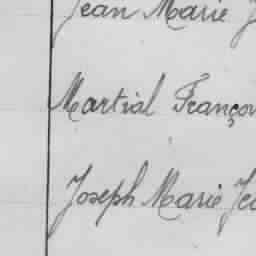 Jean Marie J
Martial Françoi
Joseph Marie Jea